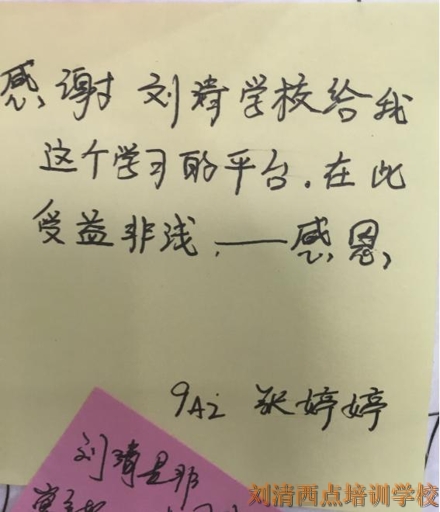 感谢刘清学校给我
这个学习的平台.在此
受益非浅.——感恩,
9A2 张婷婷
刘清是非
刘清西点培训学校